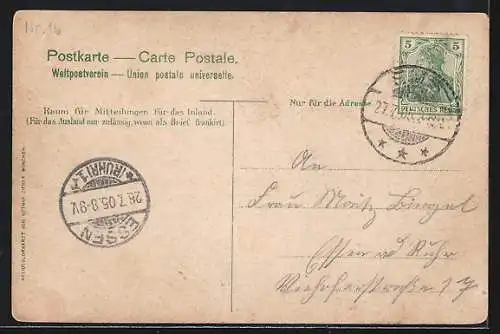 Nr. 16
Postkarte — Carte Postale.
Weltpostverein — Union postale universelle.
Raum für Mitteilungen für das Inland.
(Für das Ausland nur zulässig, wenn als Brief frankirt)
Nur für die Adresse
5 5
DEUTSCHES REICH
27.7.05
* * *
ESSEN
28.7.05.8-9V.
* (RUHR) 1
An
Frau Moritz Bingel
Essen a/d Ruhr